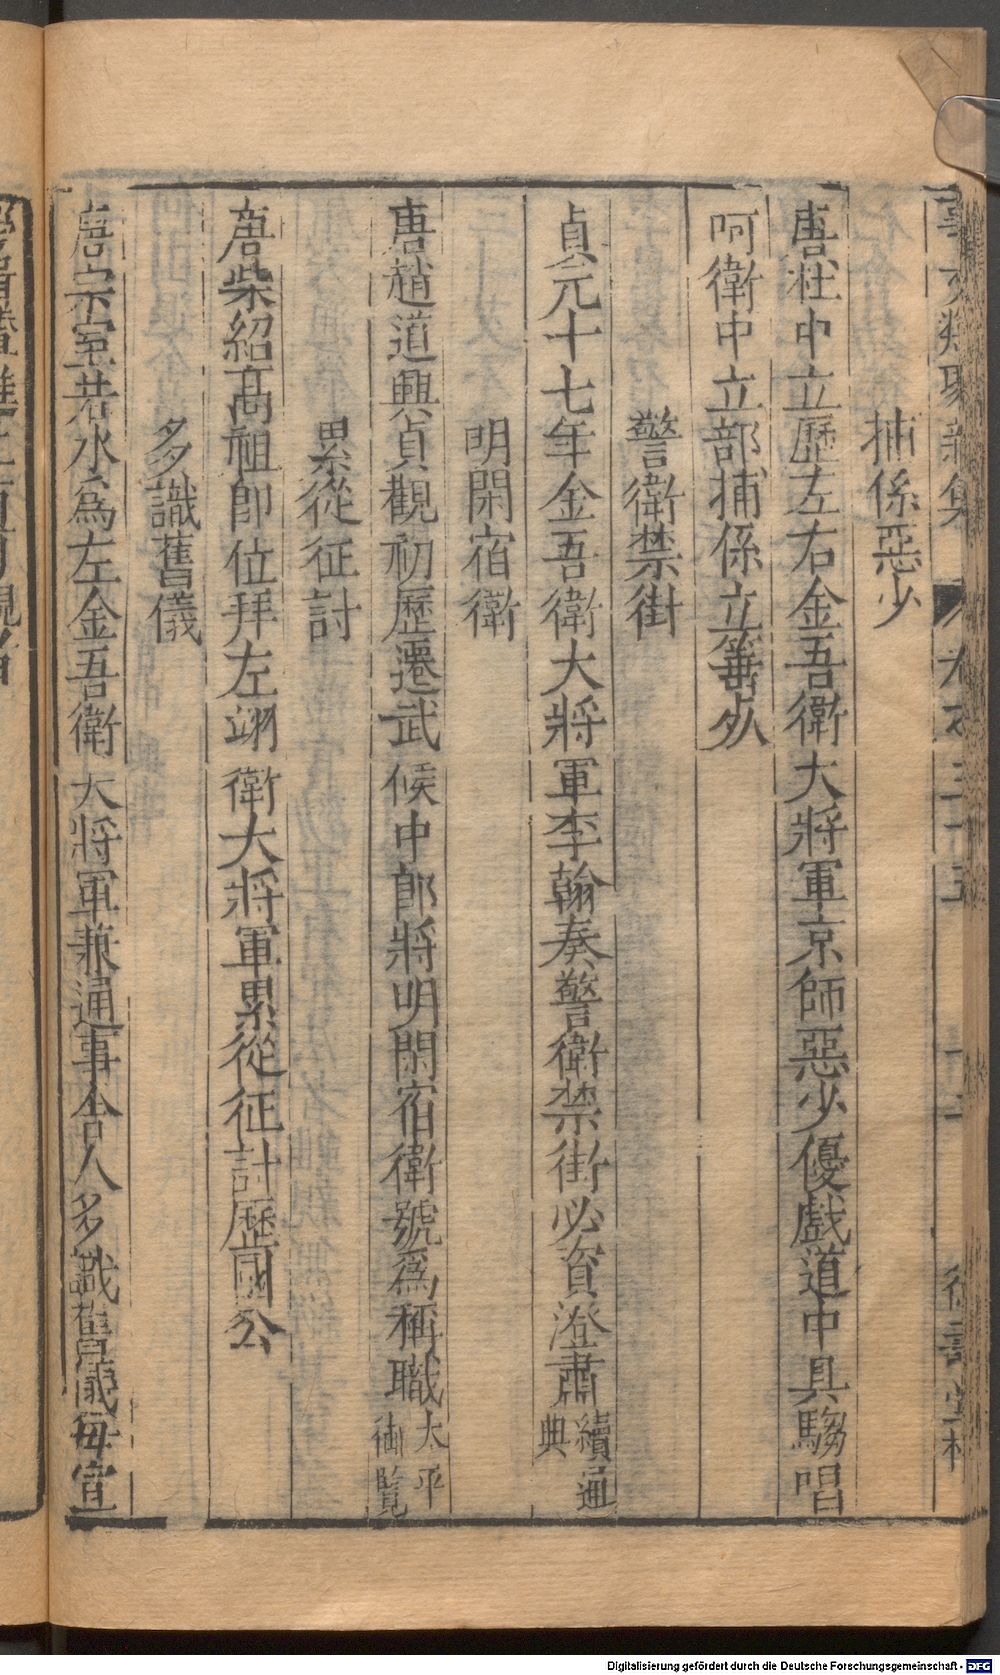 捕係惡少
唐杜中立歷左右金吾衛大將軍京師惡少優戲道中具騶唱
呵衛中立部捕係立箠死
警衛禁街
貞元十七年金吾衛大將軍李翰奏警衛禁街必資澄肅續通典
明閑宿衛
唐趙道興貞觀初歷遷武候中郎將明閑宿衛號為稱職太平御覧
累從征討
唐柴紹高祖即位拜左翊衛大將軍累從征討歷國公
多識舊儀
唐宗室若水為左金吾衛大將軍兼通事舍人多識舊儀每宣
Digitalisierung gefördert durch die Deutsche Forschungsgemeinschaft - DFG